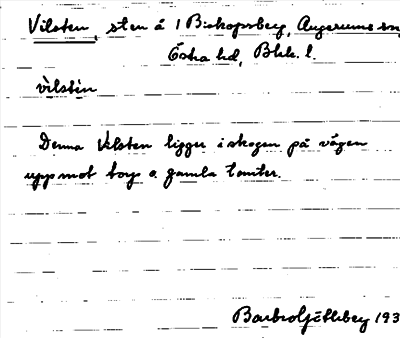 Vilsten, sten å 1 Biskopsberg, Augerums sn,
Östra hd, Blek. l.
vìlstèn
Denna Vilsten ligger i skogen på vägen
upp mot torp o. gamla tomter.
193